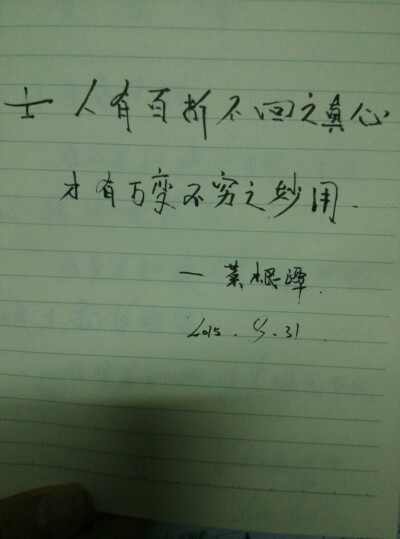 士人有百折不回之真心
才有万变不穷之妙用.
—菜根谭.
2015.8.31